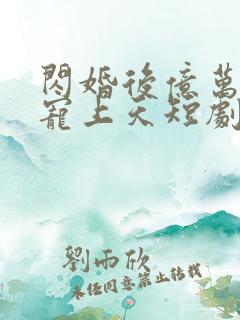 閃婚後億萬
寵上天短劇
劉雨欣
未经同意禁止转载